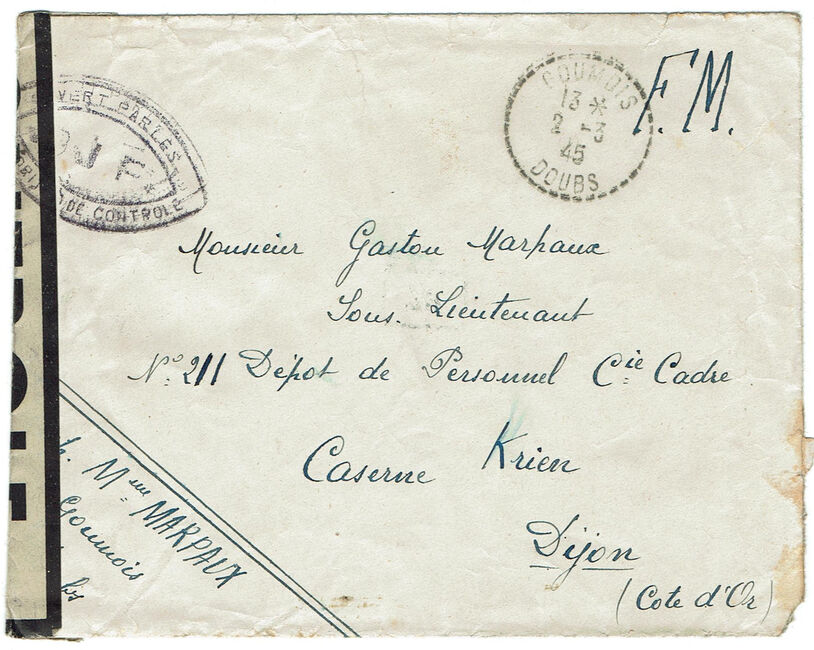 GOUMOIS
13 *
2 - 3
45
DOUBS
F.M.
VERT PAR LES
DE CONTROLE
Monsieur Gaston Marpaux
Sous. Lieutenant
N° 211 Dépot de Personnel Cie Cadre
Caserne Krien
Dijon
(Cote d'Or)
Mme MARPAUX
Goumois